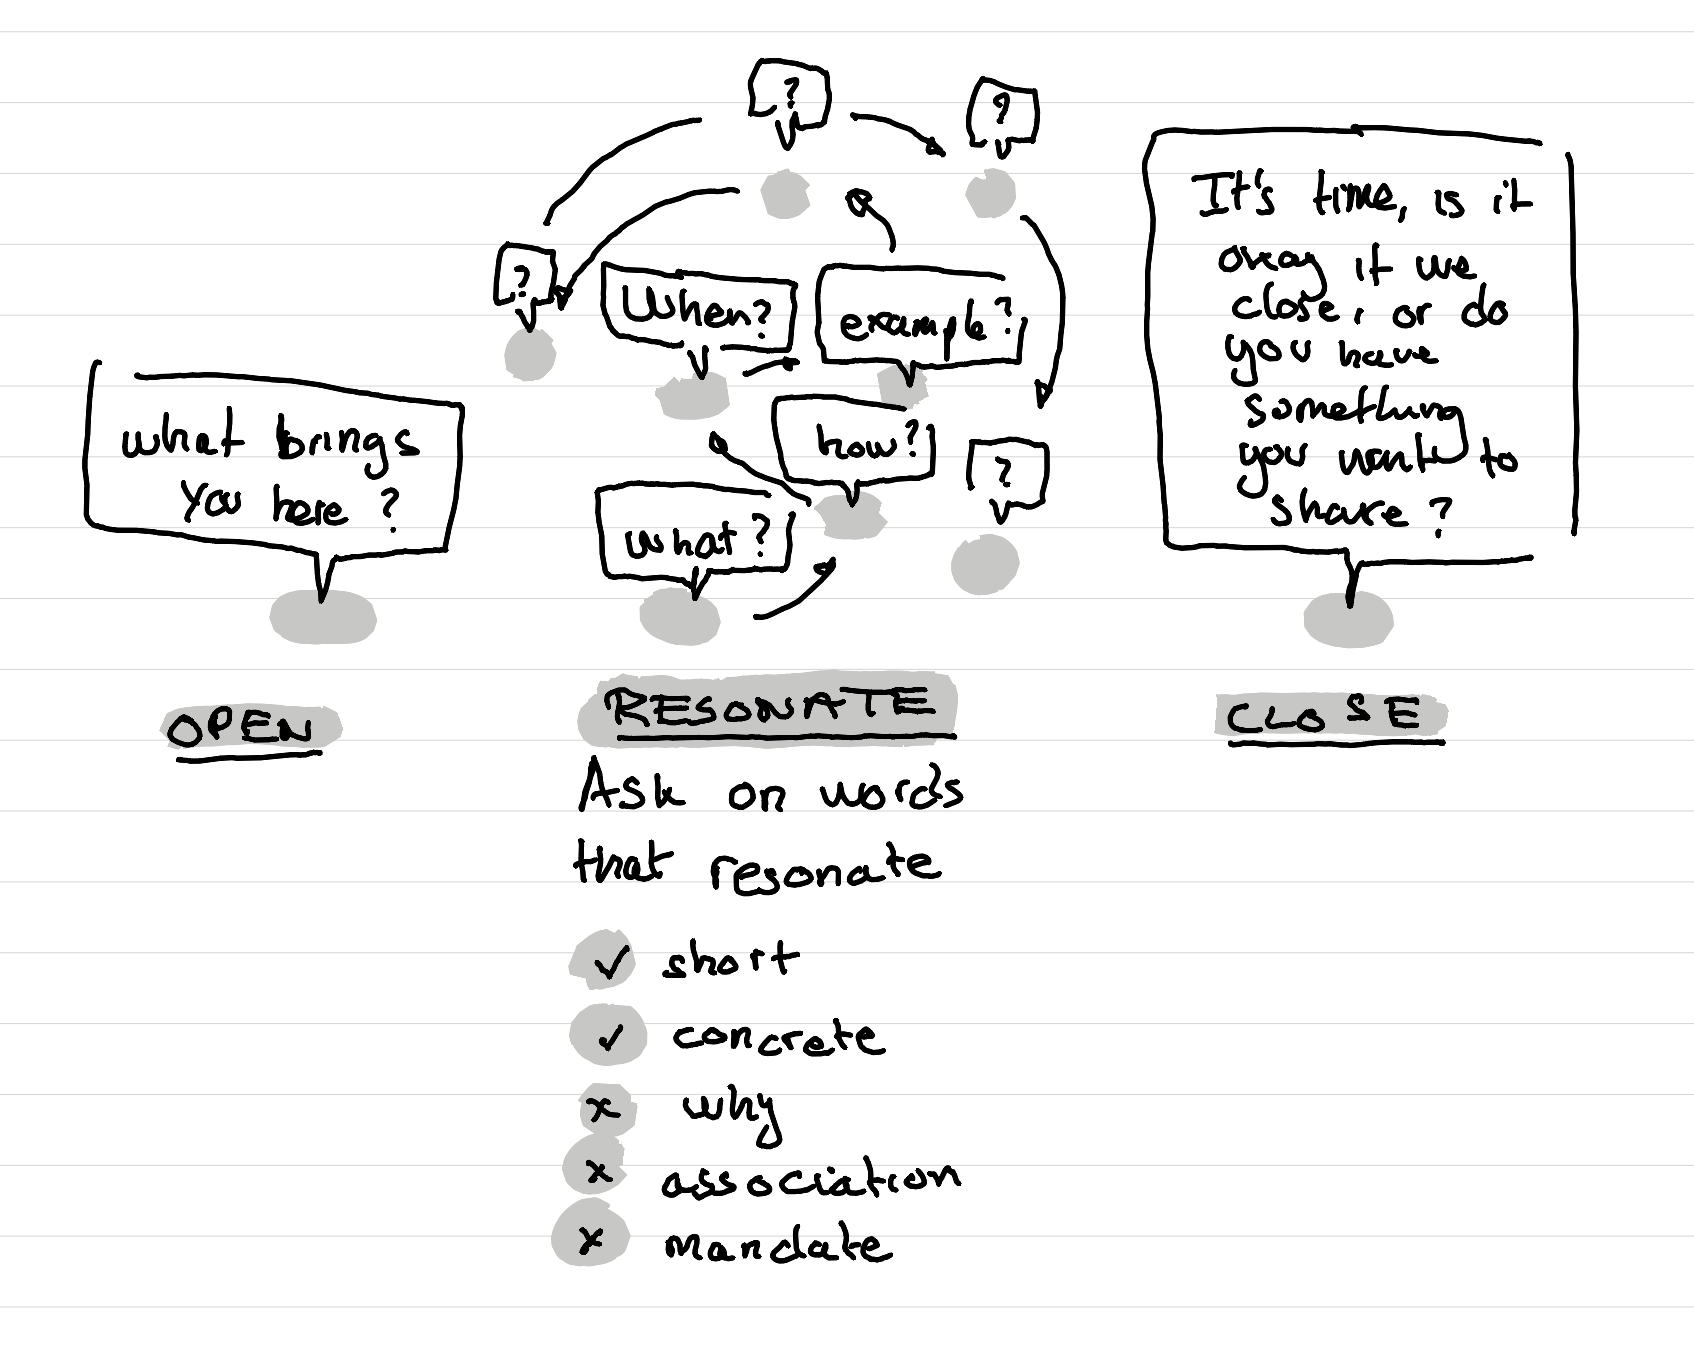 what brings
you here?
OPEN
?
?
?
When?
example?
how?
?
what?
RESONATE
Ask on words
that resonate
✓ short
✓ concrete
x why
x association
x mandate
It's time, is it
okay if we
close, or do
you have
something
you want to
share?
CLOSE